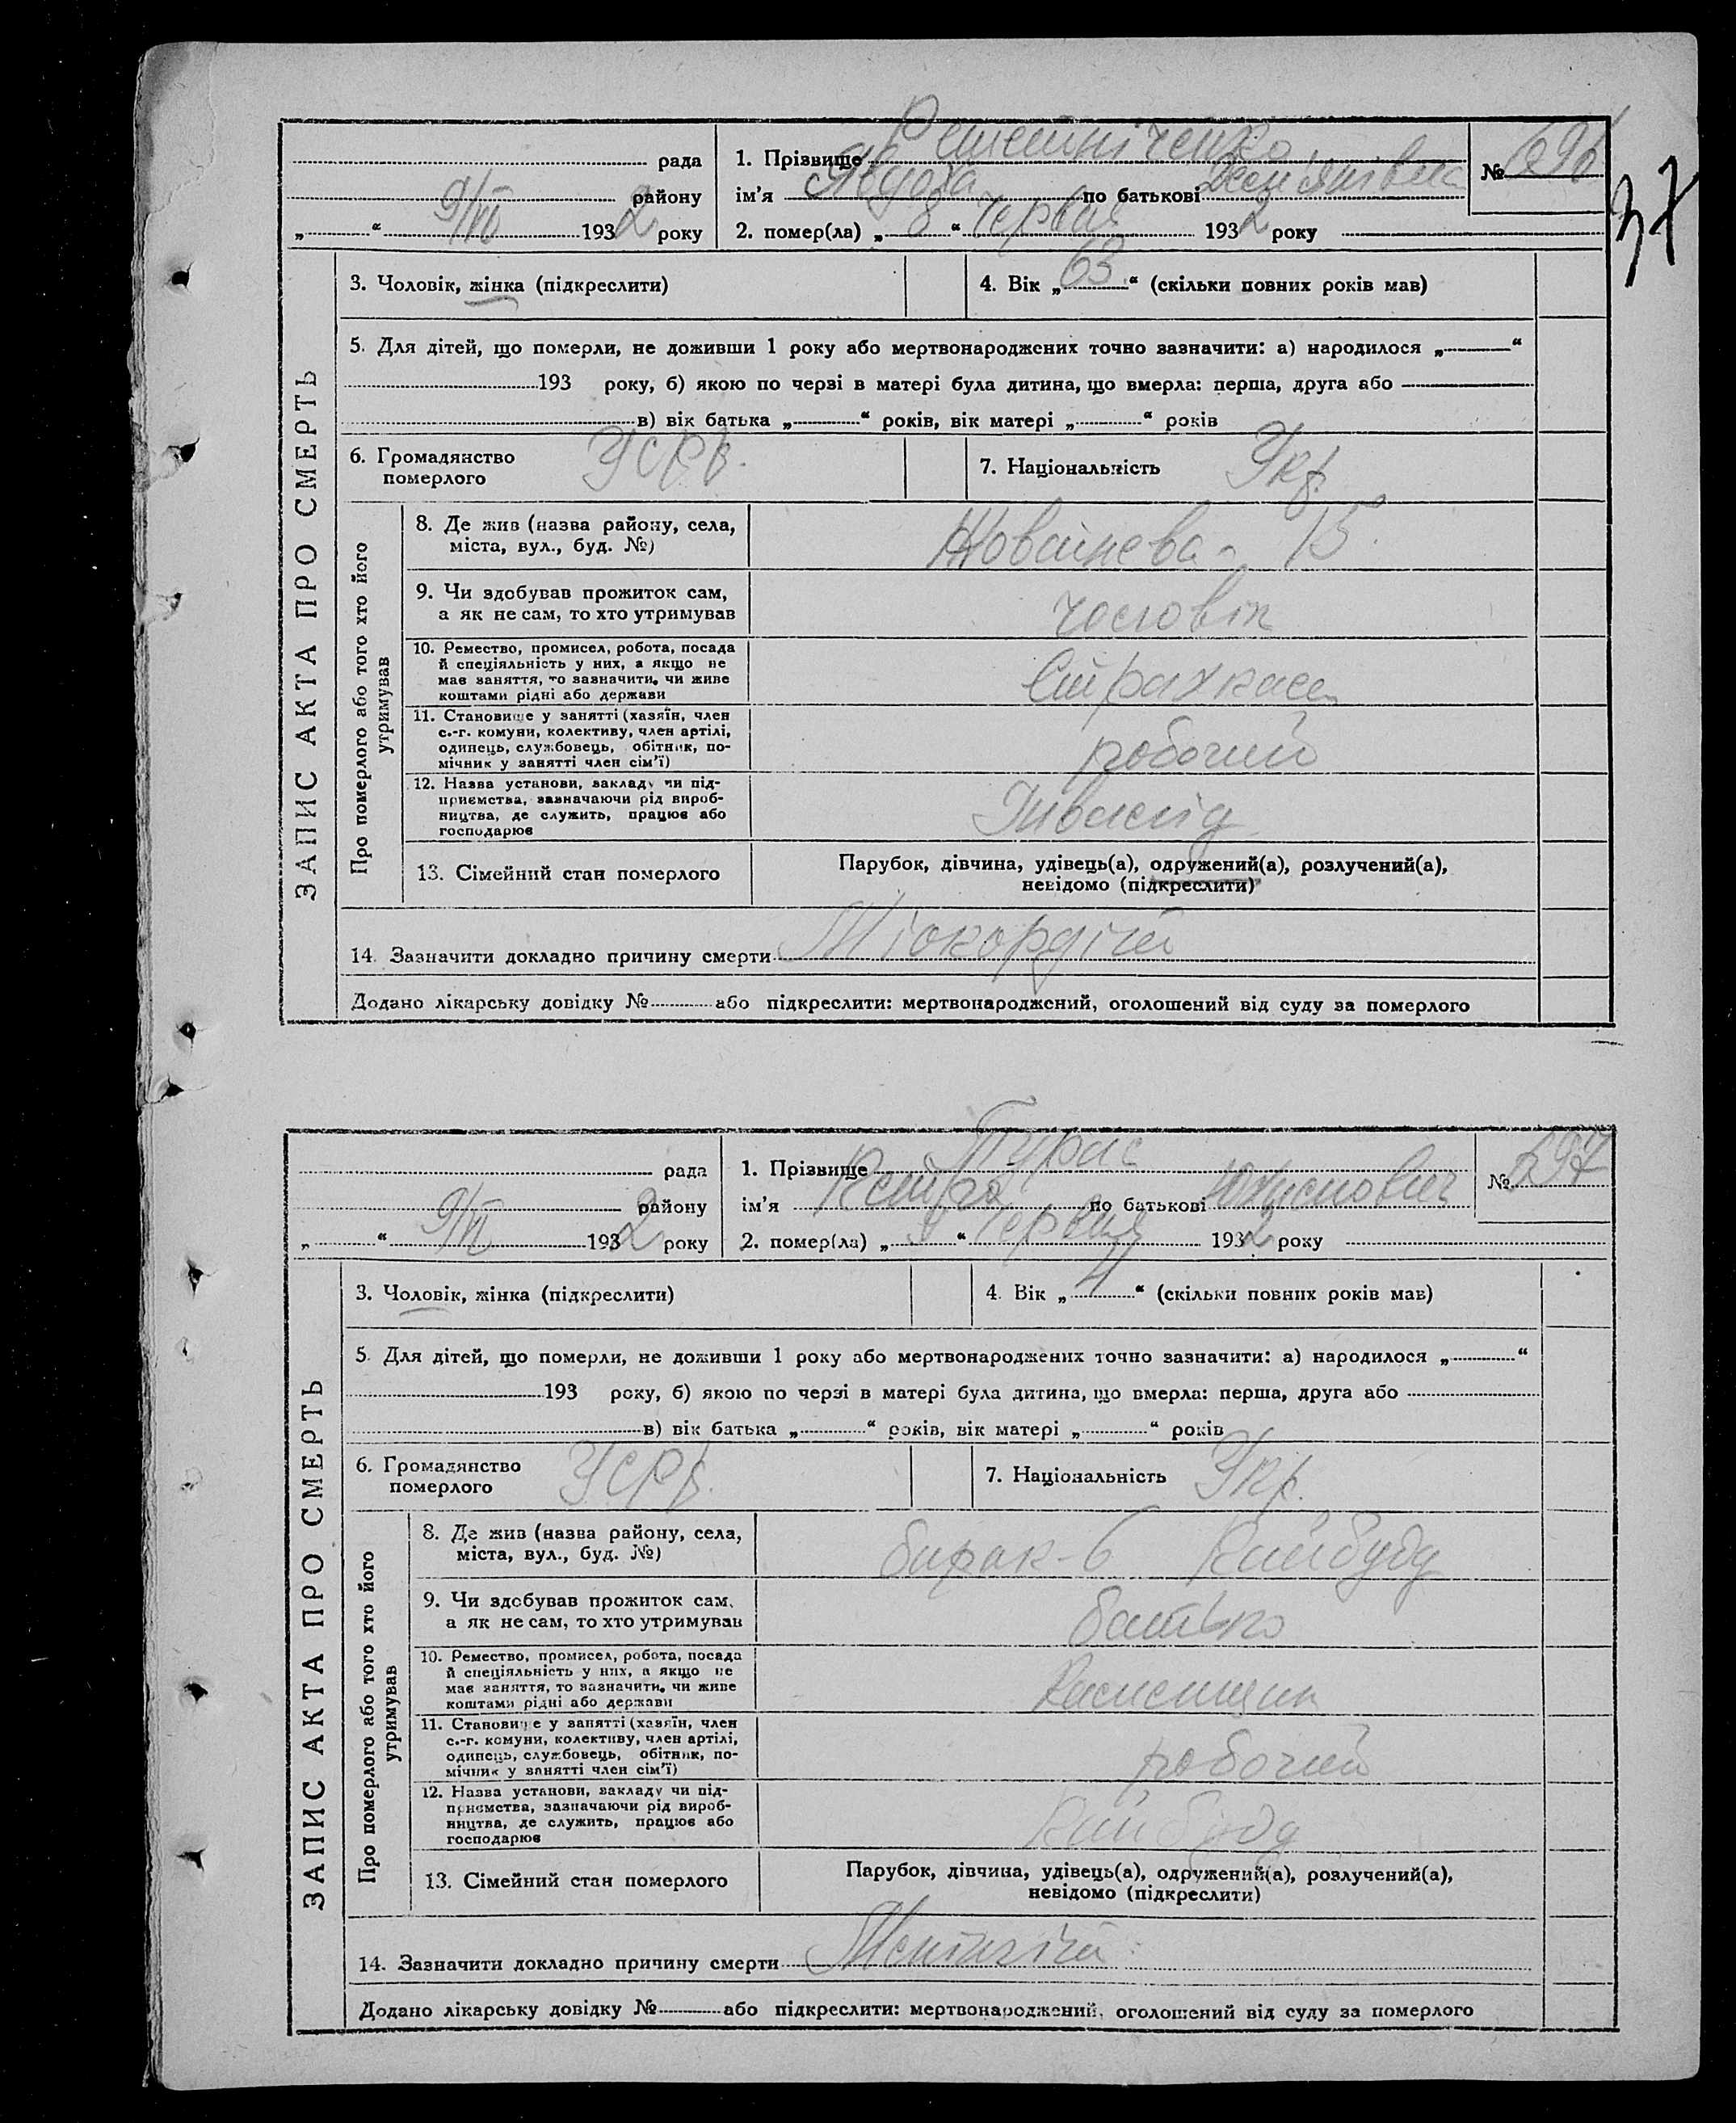 37
ЗАПИС АКТА ПРО СМЕРТЬ
рада
1. Прізвище
№ 696
району
ім'я Явдоха по батькові Демянівна
„ “ 9/VI 1932 року
2. помер(ла) „ 8 “ Червня 1932 року
3. Чоловік, жінка (підкреслити)
4. Вік „ 63 “ (скільки повних років мав)
5. Для дітей, що померли, не доживши 1 року або мертвонароджених точно зазначити: а) народилося „ “
193 року, б) якою по черзі в матері була дитина, що вмерла: перша, друга або
в) вік батька „ “ років, вік матері „ “ років
6. Громадянство померлого УСРР.
7. Національність Укр.
Про померлого або того хто його утримував
8. Де жив (назва району, села,
міста, вул., буд. №)
15
9. Чи здобував прожиток сам,
а як не сам, то хто утримував
чоловік
10. Ремество, промисел, робота, посада
й спеціяльність у них, а якщо не
має заняття, то зазначити, чи живе
коштами рідні або держави
Страхкаса
11. Становище у занятті (хазяїн, член
с.-г. комуни, колективу, член артілі,
одинець, службовець, обітник, по-
мічник у занятті член сім'ї)
робочий
12. Назва установи, закладу чи під-
приємства, зазначаючи рід вироб-
ництва, де служить, працює або
господарює
Інвалід
13. Сімейний стан померлого
Парубок, дівчина, удівець(а), одружений(а), розлучений(а),
невідомо (підкреслити)
14. Зазначити докладно причину смерти Міокордіт
Додано лікарську довідку № або підкреслити: мертвонароджений, оголошений від суду за померлого
ЗАПИС АКТА ПРО СМЕРТЬ
рада
1. Прізвище Турас
№ 697
району
ім'я Петро по батькові
„ “ 9/VI 1932 року
2. помер(ла) „ “ Червня 1932 року
3. Чоловік, жінка (підкреслити)
4. Вік „ 4 “ (скільки повних років мав)
5. Для дітей, що померли, не доживши 1 року або мертвонароджених точно зазначити: а) народилося „ “
193 року, б) якою по черзі в матері була дитина, що вмерла: перша, друга або
в) вік батька „ “ років, вік матері „ “ років
6. Громадянство померлого УСРР.
7. Національність Укр.
Про померлого або того хто його утримував
8. Де жив (назва району, села,
міста, вул., буд. №)
барак-6
9. Чи здобував прожиток сам,
а як не сам, то хто утримував
батько
10. Ремество, промисел, робота, посада
й спеціяльність у них, а якщо не
має заняття, то зазначити, чи живе
коштами рідні або держави
11. Становище у занятті (хазяїн, член
с.-г. комуни, колективу, член артілі,
одинець, службовець, обітник, по-
мічник у занятті член сім'ї)
робочий
12. Назва установи, закладу чи під-
приємства, зазначаючи рід вироб-
ництва, де служить, працює або
господарює
13. Сімейний стан померлого
Парубок, дівчина, удівець(а), одружений(а), розлучений(а),
невідомо (підкреслити)
14. Зазначити докладно причину смерти Менінгіт
Додано лікарську довідку № або підкреслити: мертвонароджений, оголошений від суду за померлого